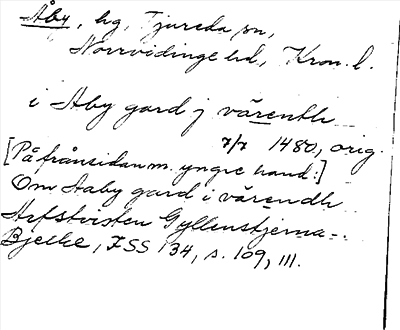 Åby, hg, Tjureda sn,
Norrvidinge hd, Kron. l.
i Aby gard j värendh
7/7 1480, orig.
[På frånsidan m. yngre hand:]
Om Aaby gard i värendh
Arfstvisten Gyllenstjerna-
Bjelke, FSS 134, s. 109, 111.